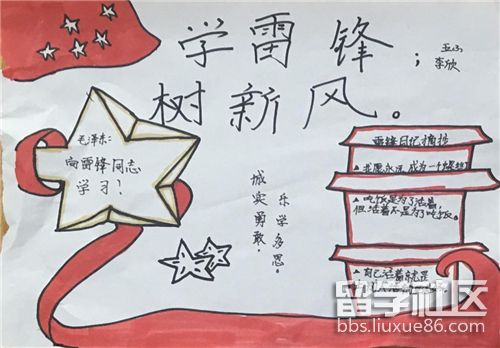 学雷锋；
树新风。
李欣
毛泽东：
向雷锋同志
学习！
诚实勇敢，
乐学多思。
雷锋日记摘抄
我愿永远成为一个
吃饭是为了活着，
但活着不是为了吃饭。
自己活着就是
留学社区
bbs.liuxue86.com